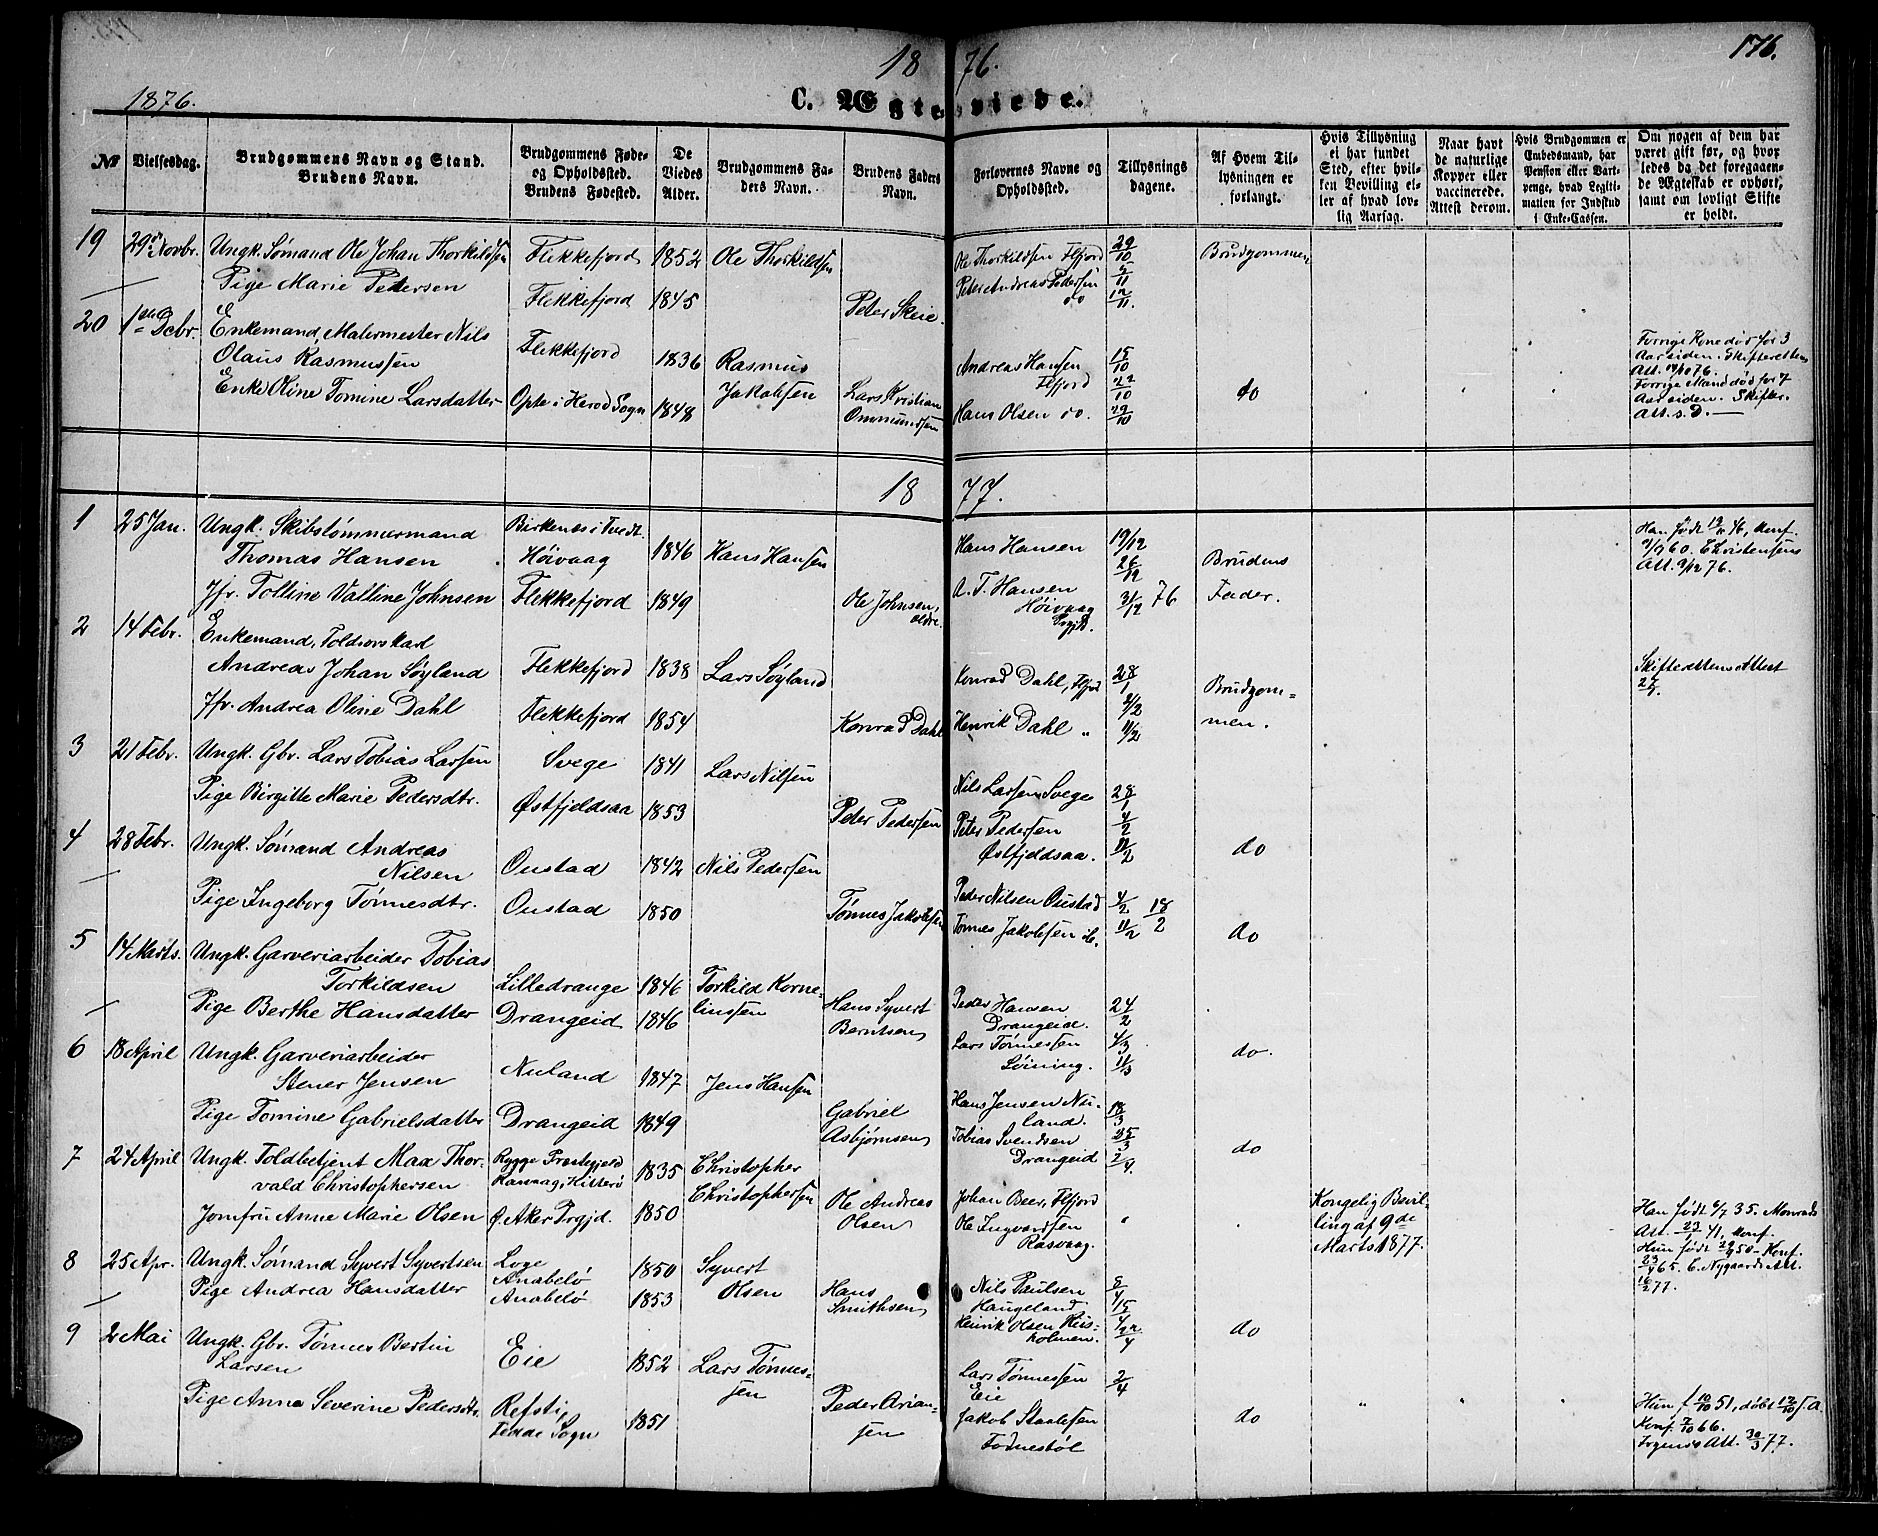 176.
18 76.
1876.
C. Ægteviede.
№
Vielsesdag.
Brudgommens Navn og Stand. Brudens Navn.
Brudgommens Føde- og Opholdssted. Brudens Fødested.
De Viedes Alder.
Brudgommens Faders Navn.
Brudens Faders Navn.
Forlovernes Navne og Opholdssted.
Tillysnings dagene.
Af Hvem Tillysningen er forlangt.
Hvis Tillysning ei har fundet Sted, efter hvilken Bevilling eller af hvad lovlig Aarsag.
Naar havt de naturlige Kopper eller vaccinerede. Attest derom.
Hvis Brudgommen er Embedsmand, har Pension eller Vartpenge, hvad Legitimation for Indskud i Enke-Cassen.
Om nogen af dem har været gift før, og hvorledes da det foregaaende Ægteskab er ophørt, samt om lovligt Skifte er holdt.
19 29de Novbr. Ungk. Sømand Ole Johan Thorkildsen Flekkefjord 1852 Ole Thorkildsen Ole Thorkildsen Flfjord 29/10 Brudgommen
Pige Marie Pedersen Flekkefjord 1845 Peter Skeie. Peter Andreas Pedersen do 5/11 12/11.
20 1ste Debr. Enkemand, Malermester Nils
Olaus Rasmussen Flekkefjord 1836 Rasmus Jakobsen Andreas Hansen Flfjord 15/10 22/10 do Forrige Kone død for 3
Aar siden. Skifterettens
Att. 14/10 76.
Enke Oline Tomine Larsdatter Opte i Herod Sogn 1848 Lars Kristian Ommundsen Hans Olsen do. 29/10 Forrige Mand død for 7
Aar siden. Skifter.
Att. s. D.
18 77.
1 25 Jan. Ungk. Skibstømmermand
Thomas Hansen Birkenes i Tvedt. Höivaag 1846 Hans Hansen Hans Hansen 19/12 26/12 Brudens Fader. Han født 12/ 46, Konf.
9/9 60. Christensens
Att. 9/12 76.
Jfr. Tolline Valline Johnsen Flekkefjord 1849 Ole Johnsen, ældre. A. T. Hansen Höivaag Prgjd. 31/12 76
2 14 Febr. Enkemand, Toldrorskarl
Andreas Johan Søyland Flekkefjord 1838 Lars Søyland Konrad Dahl, Flfjord 28/1 Brudgommen. Skifterettens Attest
Jfr. Andrea Oline Dahl Flekkefjord 1854 Konrad Dahl Henrik Dahl " 4/2 11/2
3 21 Febr. Ungk. Gbr. Lars Tobias Larsen Svege 1841 Lars Nilsen Nils Larsen Svege 28/1
Pige Birgitte Marie Pedersdtr. Østfjeldsaa 1853 Peter Pedersen Peter Pedersen Østfjeldsaa. 4/2 11/2 do
4 28 Febr. Ungk. Sømand Andreas
Nilsen Oustad 1842 Nils Pedersen Peder Nilsen Oustad 4/2 18/2
Pige Ingeborg Tønnesdtr. Oustad 1850 Tønnes Jakobsen Tønnes Jakobsen ib. 11/2 do
5 14 Marts. Ungk. Garveriarbeider Tobias
Torkildsen Lilledrange 1846 Torkild Kornelinssen Peder Hansen Drangeid. 24/2
Pige Berthe Hansdatter Drangeid 1846 Hans Syvert Berntsen Lars Tønnessen Løining. 4/3 11/3 do.
6 18 April Ungk. Garveriarbeider
Stener Jensen Nuland 1847 Jens Hansen Hans Jensen Nuland. 18/3
Pige Tomine Gabrielsdatter Drangeid 1849 Gabriel Asbjørnsen Tobias Svendsen Drangeid 25/3 2/4. do
7 24 April Ungk. Toldbetjent Max Thorvald Christophersen Rygge Præstegjeld Rasvaag, Hitterø 1835 Christopher Christophersen Johan Beer, Flfjord Kongelig Bevilling af 9de Marts 1877. Han født 6/7 35. Monrads
Att. 23/1 41, Konf.
Jomfru Anne Marie Olsen Ø. Aker Prgjd. 1850 Ole Andreas Olsen Ole Ingvardsen Rasvaag. " Hun født 29/9 50 - Konf.
23/4 65. C. Nygaards Att.
16/2 77.
8 25 Apr. Ungk. Sømand Syvert Syvertsen Loge Anabelø 1850 Syvert Olsen Nils Paulsen Haugeland 8/4 15/4
Pige Andrea Hansdatter Anabelø 1853 Hans Smithsen Henrik Olsen Reisholmen. 22/4 do
9 2 Mai Ungk. Gbr. Tønnes Bertin
Larsen Eie 1852 Lars Tønnessen Lars Tønnessen Eie 2/4
Pige Anne Severine Pedersdtr. Refsti, Fedde Sogn 1851 Peder Ariansen Jakob Staalesen Fodnestøl do " Hun f. 10/10 51, døbt 19/10 s. A.
Konf. 7/10 66.
Irgens's Att. 30/3 77.